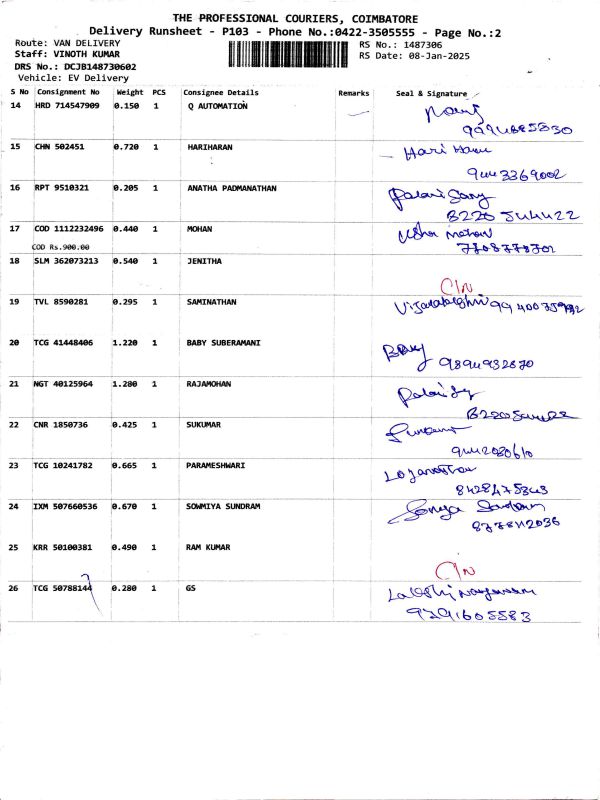 THE PROFESSIONAL COURIERS, COIMBATORE
Delivery Runsheet - P103 - Phone No.:0422-3505555 - Page No.:2
Route: VAN DELIVERY RS No.: 1487306
Staff: VINOTH KUMAR RS Date: 08-Jan-2025
DRS No.: DCJB148730602
Vehicle: EV Delivery
S No Consignment No Weight PCS Consignee Details Remarks Seal & Signature
14 HRD 714547909 0.150 1 Q AUTOMATION
15 CHN 502451 0.720 1 HARIHARAN Hari
9443369002
16 RPT 9510321 0.205 1 ANATHA PADMANATHAN
17 COD 1112232496 0.440 1 MOHAN Usha Mohan
COD Rs.900.00 7708778702
18 SLM 362073213 0.540 1 JENITHA
C/N
19 TVL 8590281 0.295 1 SAMINATHAN
20 TCG 41448406 1.220 1 BABY SUBERAMANI
9894932870
21 NGT 40125964 1.280 1 RAJAMOHAN
22 CNR 1850736 0.425 1 SUKUMAR
23 TCG 10241782 0.665 1 PARAMESHWARI
8428475343
24 IXM 507660536 0.670 1 SOWMIYA SUNDRAM
25 KRR 50100381 0.490 1 RAM KUMAR
C/N
26 TCG 50788144 0.280 1 GS
9791605583